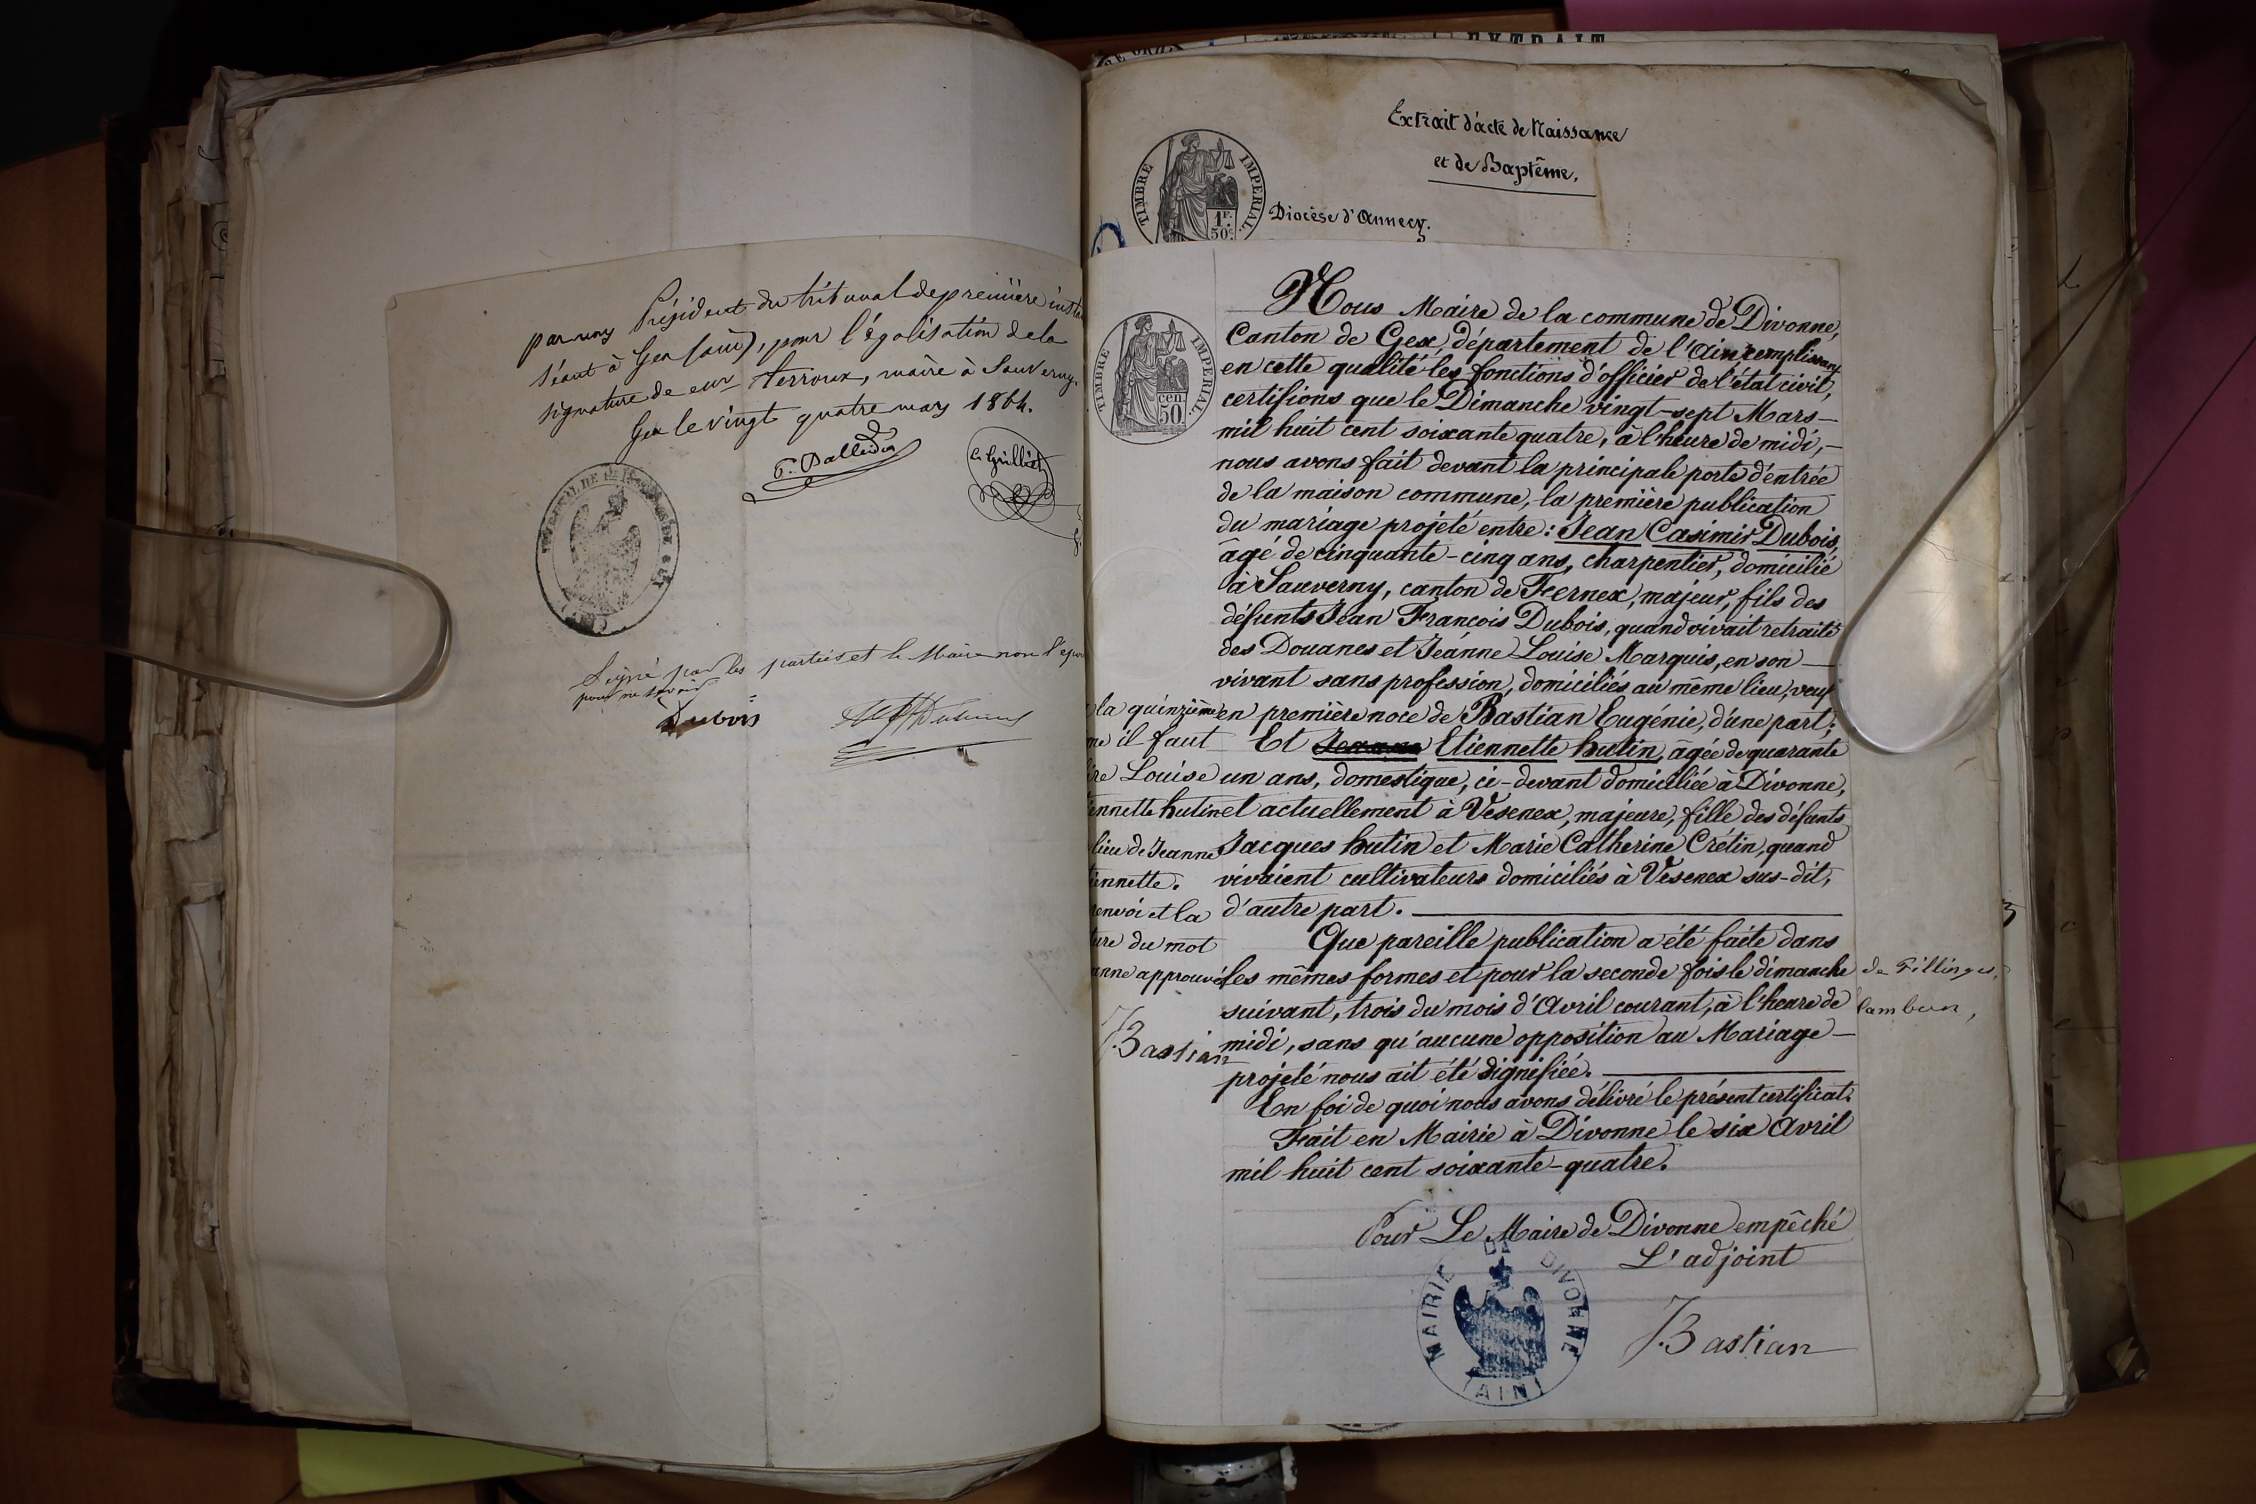 par nous Président du tribunal de première inst
séant à Gex (ain), pour légalisation de la
signature de eur Terroux, maire à Sauverny.
Gex le vingt quatre mars 1864.
TRIBUNAL DE 1re
GEX
Signé par les parties et le Maire non l'epou
pour ne savoir
Dubois
EXTRAIT
Extrait d'acte de Naissance
et de Baptême.
TIMBRE IMPERIAL
1F.
50c.
Diocèse d'Annecy.
TIMBRE IMPERIAL
cen
50
Nous Maire de la commune de Divonne,
Canton de Gex, département de l'Ain, remplissant
en cette qualité les fonctions d'officier de l'état civil,
certifions que le Dimanche vingt-sept Mars
mil huit cent soixante quatre, à l'heure de midi,
nous avons fait devant la principale porte d'entrée
de la maison commune, la première publication
du mariage projeté entre: Jean Casimir Dubois,
âgé de cinquante-cinq ans, charpentier, domicilié
à Sauverny, canton de Fernex, majeur, fils des
défunts Jean François Dubois, quand vivait retraité
des Douanes et Jeanne Louise Marquis, en son
vivant sans profession, domiciliés au même lieu, veuf
en première noce de Bastian Eugénie, d'une part;
Et Jeanne Etiennette hutin, âgée de quarante
un ans, domestique, ci-devant domiciliée à Divonne,
et actuellement à Vesenex, majeure, fille des défunts
Jacques hutin et Marie Catherine Crétin, quand
vivaient cultivateurs domiciliés à Vesenex sus-dit,
d'autre part.
Que pareille publication a été faite dans
les mêmes formes et pour la seconde fois le dimanche
suivant, trois du mois d'Avril courant, à l'heure de
midi, sans qu'aucune opposition au Mariage
projeté nous ait été signifiée.
En foi de quoi nous avons délivré le présent certificat.
Fait en Mairie à Divonne le six Avril
mil huit cent soixante-quatre.
Pour Le Maire de Divonne empêché
L'adjoint
MAIRIE DE DIVONNE
(AIN)
J. Bastian
la quinzième
ne il faut
re Louise
ennette hutin
lieu de Jeanne
iennette.
renvoi et la
ture du mot
anne approuvé
J. Bastian
de Fillinges,